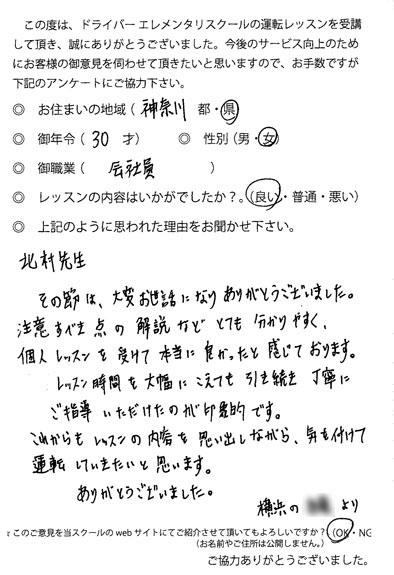 この度は、ドライバー エレメンタリスクールの運転レッスンを受講
して頂き、誠にありがとうございました。今後のサービス向上のため
にお客様の御意見を伺わせて頂きたいと思いますので、お手数ですが
下記のアンケートにご協力下さい。
◎ お住まいの地域（神奈川 都・県
◎ 御年令（30 才） ◎ 性別（男・女）
◎ 御職業（ 会社員 ）
◎ レッスンの内容はいかがでしたか？。（良い・普通・悪い）
◎ 上記のように思われた理由をお聞かせ下さい。
北村先生
その節は、大変お世話になりありがとうございました。
注意すべき点の解説などとても分かりやすく、
個人レッスンを受けて本当に良かったと感じております。
レッスン時間を大幅にこえても引き続き丁寧に
ご指導いただけたのが印象的です。
これからもレッスンの内容を思い出しながら、気を付けて
運転していきたいと思います。
ありがとうございました。
横浜の より
このご意見を当スクールの web サイトにてご紹介させて頂いてもよろしいですか？（OK・NG
（お名前やご住所は公開しません。）
ご協力ありがとうございました。